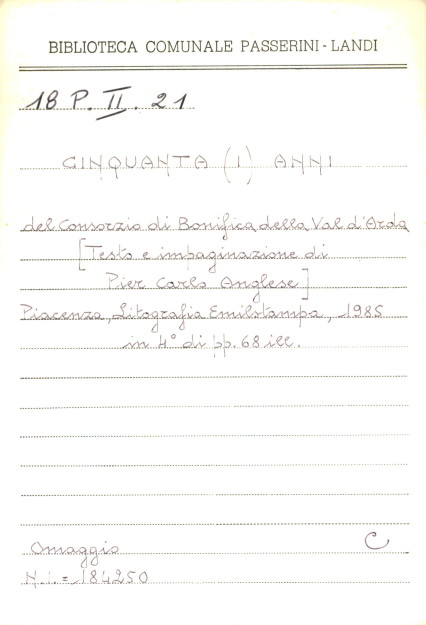 BIBLIOTECA COMUNALE PASSERINI-LANDI
18 P. II. 21
CINQUANTA (I) ANNI
del Consorzio di Bonifica della Val d'Arda
[Testo e impaginazione di
Pier Carlo Anglese]
Piacenza, Litografia Emilstampa, 1985
in 4° di pp. 68 ill.
Omaggio C
N.i. = 184250